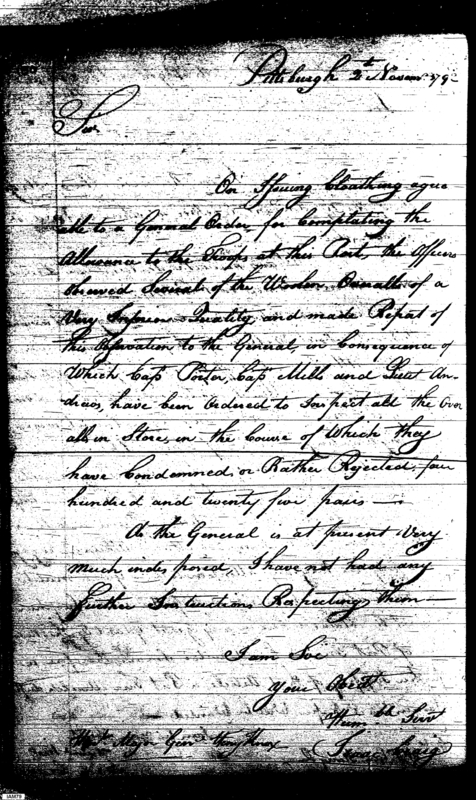 Pittsburgh 2th Novem 179
Sir
On Issuing Cloathing agre
able to a General Order, for Compleating the
Allowance to the Troops at this Post, the Officers
observed Severals of the Woolen Overalls of a
Very Inferior Quality, and made Report of
this Observation to the General, in Consequence of
Which Capt Porter, Capt Mills and Lieut An-
drews, have been Ordered to Inspect all the Over
alls in Store, in the Course of Which they
have Condemned, or Rather Rejected, four
hundred and twenty five pairs —
As the General is at present Very
much indisposed, I have not had any
further Instructions Respecting them —
I am Sir
Your Obdt
Humble Servt
Major Genl Henry Knox
Isaac Craig
IAM78